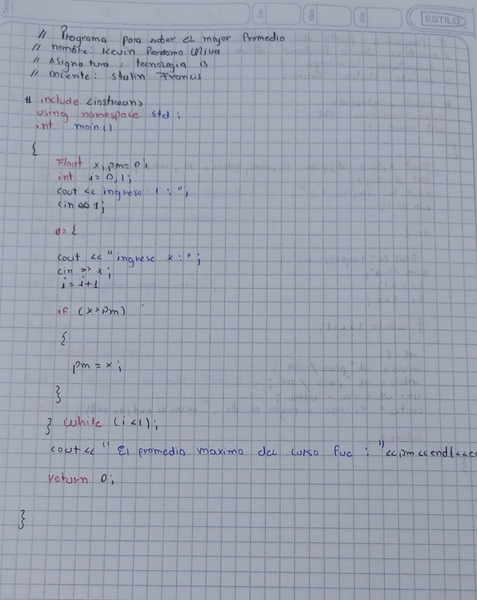 ESTILO
// Programa para saber el mayor Promedio
// nombre: Kevin Perdomo Oliva
// Asignatura: tecnologia 13
// Docente: Stalin Francis
# include <instream>
using namespace std;
int main()
{
Float x, pm= 0;
int i=0,1;
cout << ingrese 1 : ";
cin >> 1;
do {
cout << "ingrese x : ";
cin >> x;
i = i+1
if (x>pm)
{
pm = x;
}
} while (i<1);
cout << " El promedio maximo del curso fue : "<<pm<<endl<<e
return 0;
}